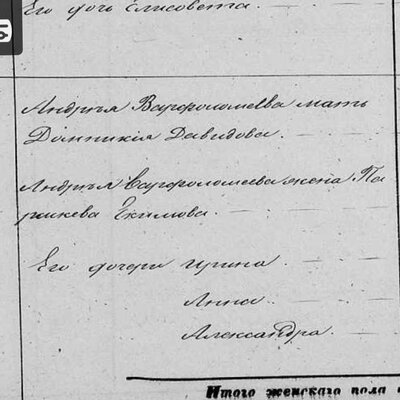 Его дочь Елисовета.
Андрея Варфоломеева мать
Домникия Давидова.
Андрея Варфоломеева жена Па
рскева Екимова.
Его дочери Ирина
Анна
Александра.
Итого женскаго пола